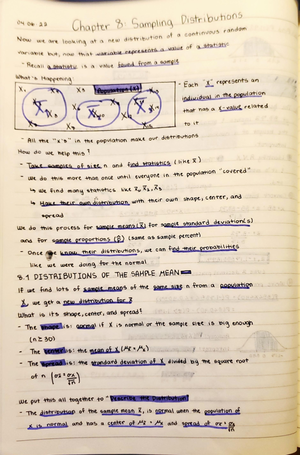 04.06.23
Chapter 8: Sampling Distributions
Now we are looking at a new distribution of a continuous random
variable but, now that variable represents a value of a statistic.
- Recall a statistic is a value found from a sample
What's Happening:
Population (X)
- Each "x" represents an
individual in the population
that has a x-value related
to it
- All the "x's" in the population make our distributions
How do we help this?
- Take samples of size n and find statistics (like x̄)
- We do this more than once until everyone in the population "covered"
↳ We find many statistics like x̄₁, x̄₂, x̄₃
↳ Have their own distribution with their own shape, center, and
spread
We do this process for sample means (x̄) for sample standard deviation (s)
and for sample proportions (p̂) (same as sample percent)
- Once we know their distributions, we can find their probabilities
like we were doing for the normal
8.1 DISTRIBUTIONS OF THE SAMPLE MEAN
If we find lots of sample means of the same size n from a population
X, we get a new distribution for x̄
What is its shape, center, and spread?
- The shape is: normal if X is normal or the sample size is big enough
(n ≥ 30)
- The center is: the mean of X (μx̄ = μx)
- The spread is: the standard deviation of X divided by the square root
of n (σx̄ = σx/√n)
We put this all together to "Describe the Distribution"
- The distribution of the sample mean x̄, is normal when the population of
X is normal and has a center of μx̄ = μx and spread of σx̄ = σx/√n